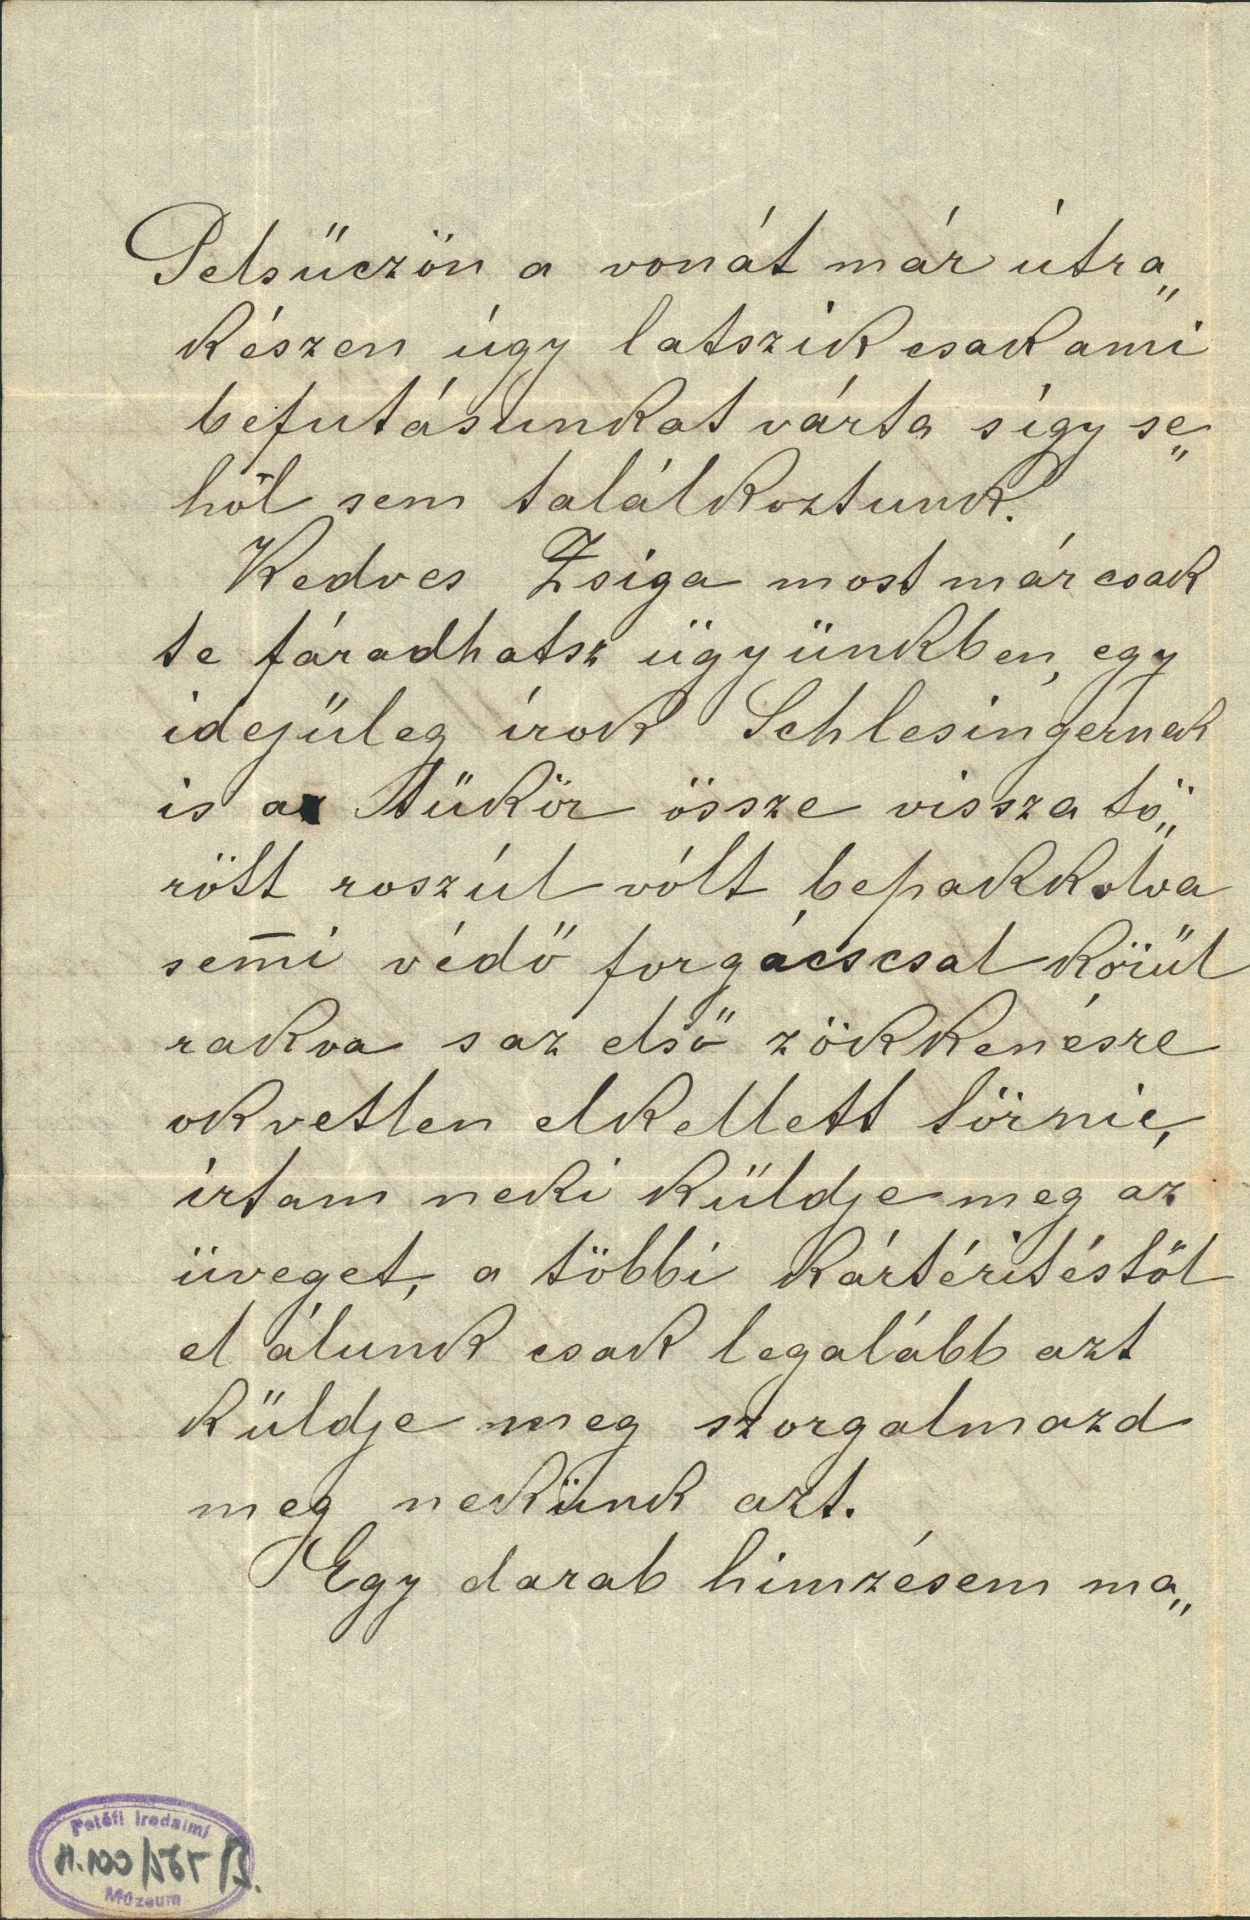 Pelsüczön a vonát már útra„
készen úgy latszik csak ami
befutásunkat várta s így se„
hól sem találkoztunk.
Kedves Zsiga most már csak
te fáradhatsz ügyünkben, egy
idejüleg írok Schlesingernek
is a Tükör össze vissza tö„
rött roszúl vólt bepakkolva
sem̄i védő forgácscsal körül
rakva s az első zökkenésre
okvetlen elkellett törnie,
írtam neki küldje meg az
üveget, a többi kártérítéstöl
el álunk csak legalább azt
küldje meg szorgalmazd
meg nekünk azt.
Egy darab himzésem ma„
Petőfi Irodalmi
Múzeum